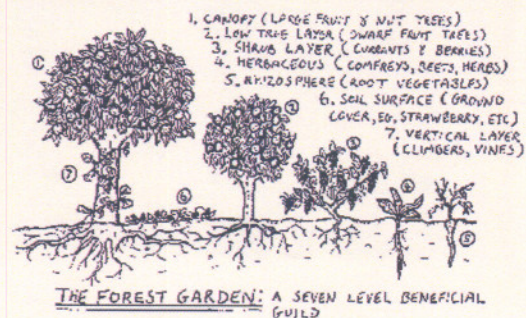 1. CANOPY (LARGE FRUIT & NUT TREES)
2. LOW TREE LAYER (DWARF FRUIT TREES)
3. SHRUB LAYER (CURRANTS & BERRIES)
4. HERBACEOUS (COMFREYS, BEETS, HERBS)
5. RHIZOSPHERE (ROOT VEGETABLES)
6. SOIL SURFACE (GROUND
COVER, EG, STRAWBERRY, ETC)
7. VERTICAL LAYER
(CLIMBERS, VINES)
1
2
3
4
5
6
7
THE FOREST GARDEN: A SEVEN LEVEL BENEFICIAL
GUILD